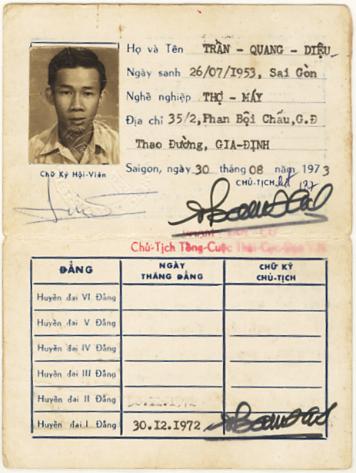 Họ và Tên TRẦN - QUANG - DIỆU
Ngày sanh 26/07/1953, Sai Gòn
Nghề nghiệp THỢ - MÁY
Địa chỉ 35/2, Phan Bội Châu, G.Đ
Thao Đường, GIA-ĐỊNH
Chữ Ký Hội-Viên
Saigon, ngày 30 tháng 08 năm 1973
CHỦ-TỊCH
Chủ-Tịch Tổng-Cuộc
ĐẲNG
NGÀY THÁNG ĐẲNG
CHỮ KÝ CHỦ-TỊCH
Huyền đai VI Đẳng
Huyền đai V Đẳng
Huyền đai IV Đẳng
Huyền đai III Đẳng
Huyền đai II Đẳng
Huyền đai I Đẳng 30.12.1972